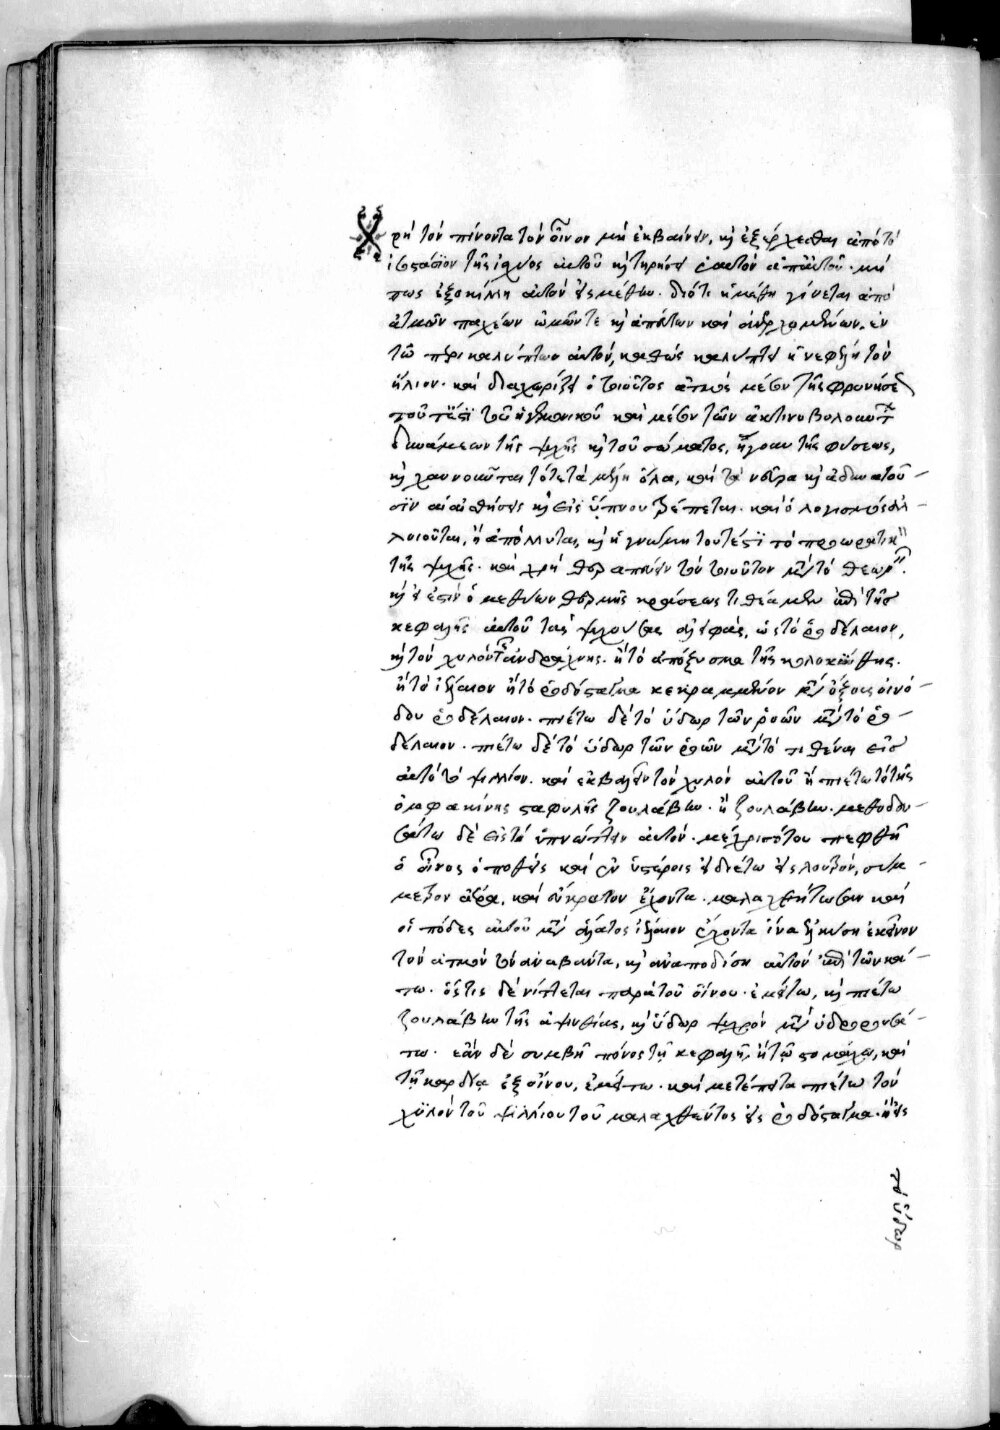 Χρὴ τὸν πίνοντα τὸν οἶνον μὴ ἐκβαίνειν, καὶ ἐξέρχεσθαι ἀπὸ τὸ
ἱστάσιον τῆς ἰσχύος αὐτοῦ καὶ τηρήσει ἑαυτὸν ἀπ' αὐτοῦ· μή
πως ἐξοκίλλη αὐτὸν εἰς μέθην. διότι ἡ μέθη γίνεται ἀπὸ
ἀτμῶν παχέων ὠμῶν τε καὶ ἀπέπτων καὶ ἀνερχομένων. ἐν
τῶ περικαλύπτειν αὐτόν, καθὼς καλύπτει ἡ νεφέλη τὸν
ἥλιον· καὶ διαχωρίζει ὁ τοιοῦτος ἀτμὸς μέσον τῆς φρονήσεως
τουτέστι τοῦ ἡγεμονικοῦ καὶ μέσον τῶν ἀκτινοβολουσῶν
δυνάμεων τῆς ψυχῆς καὶ τοῦ σώματος, ἤγουν τῆς φύσεως,
καὶ χαυνοῦνται τότε τὰ μέλη ὅλα, καὶ τὰ νεῦρα καὶ ἀδυνατοῦ-
σιν αἱ αἰσθήσεις καὶ εἰς ὕπνον τρέπεται. καὶ ὁ λογισμὸς ἀλ-
λοιοῦται, ἢ ἀπόλλυται, καὶ ἡ γνώμη τουτέστι τὸ προορατικὸν
τῆς ψυχῆς. καὶ χρὴ θεραπεύειν τὸν τοιοῦτον μετὰ τὸ θεωρεῖν.
καὶ εἰ ἐστὶν ὁ μεθύων θερμῆς κράσεως τιθέαμεν ἐπὶ τῆς
κεφαλῆς αὐτοῦ τὰς ψυχούσας ἀλοιφάς, ὡς τὸ ῥοδέλαιον,
καὶ τὸν χυλὸν τῆς ἀνδράχνης. ἢ τὸ ἀπόξυσμα τῆς κολοκύνθης.
ἢ τὸ ἰέλαιον ἢ τὸ ῥοδόσταγμα κεκραμμένον μετὰ ὄξους οἰνώ-
δου ῥοδέλαιον. πιέτω δὲ τὸ ὕδωρ τῶν ῥοῶν μετὰ τὸ ῥο-
δέλαιον. πιέτω δὲ τὸ ὕδωρ τῶν ῥοῶν μετὰ τὸ τιθέναι εἰς
αὐτὸ τὸ ψύλλιον. καὶ ἐκβαλεῖν τὸν χυλὸν αὐτοῦ ἢ πιέτω τὸ τῆς
ὀμφακίνης σταφυλῆς ζουλάβιν. ἢ ζουλάβιν. μεθοδευ-
σάτω δὲ εἰς τὸ ὑπνώττειν αὐτόν. μέχρις ὅτου πεφθῆ
ὁ οἶνος ὁ ποθεὶς καὶ ἐν ὑστέροις εἰσιέτω εἰς λουτρόν, σύμ-
μετρον ἀέρα, καὶ εὔκρατον ἔχοντα. μαλαχθήτωσαν καὶ
οἱ πόδες αὐτοῦ μετὰ ἅλατος ἰέλαιον ἔχοντα ἵνα ἑλκύση ἐκεῖνον
τὸν ἀτμὸν τὸν ἀναβάντα, καὶ ἀναποδίση αὐτὸν ἐπὶ τῶν κά-
τω. ὅστις δὲ νίπτεται παρὰ τοῦ οἴνου. ἐμείτω, καὶ πιέτω
ζουλάβιν τῆς ἀψινθίας, καὶ ὕδωρ ψυχρὸν μετὰ ὑδροροσά-
του. ἐὰν δὲ συμβῆ πόνος τῇ κεφαλῆ, ἢ τῶ στομάχω, καὶ
τῇ καρδία ἐξ οἴνου, ἐμείτω. καὶ μετέπειτα πιέτω τὸν
χυλὸν τοῦ ψυλλίου τοῦ μαλαχθέντος εἰς ῥοδόσταγμα. ἢ εἰς
τὸ ὕδωρ